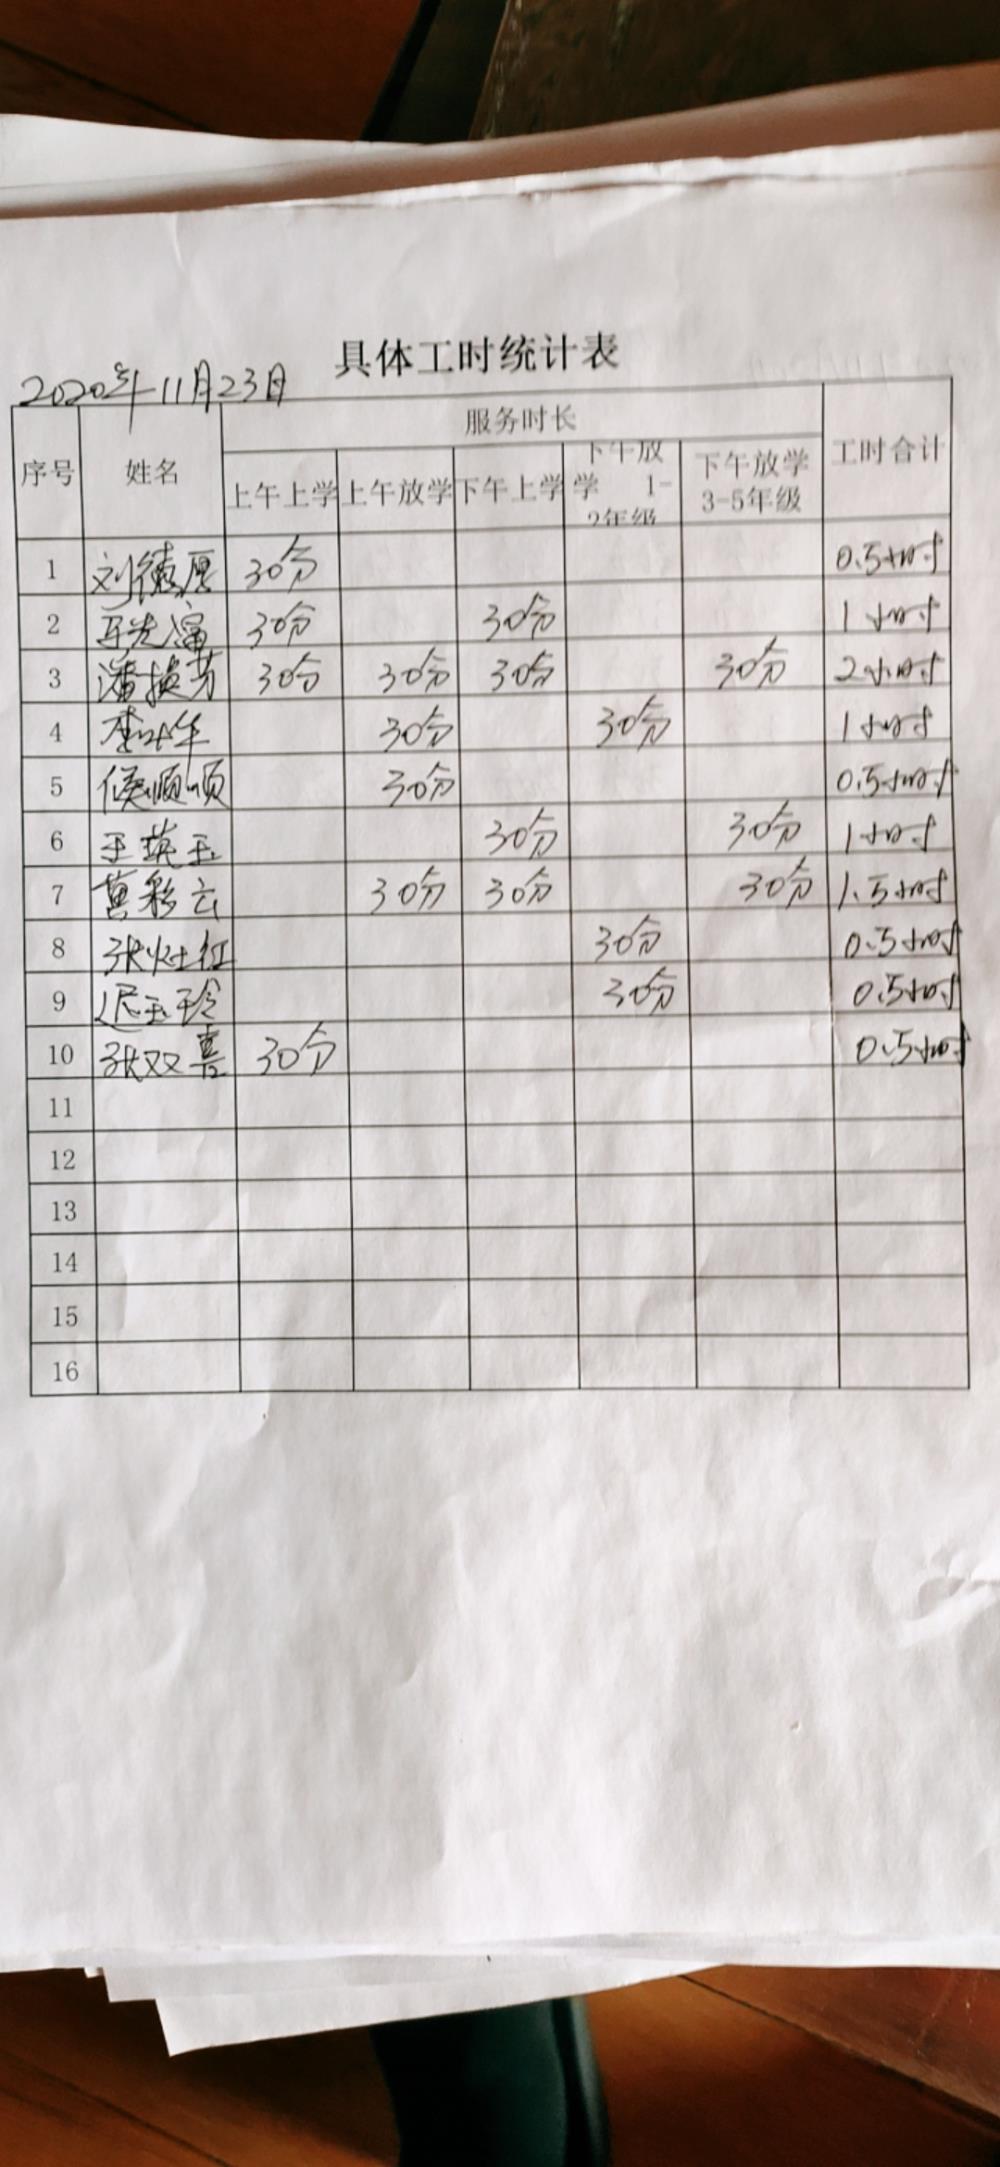 具体工时统计表
2020年11月23日
序号 姓名 服务时长 工时合计
上午上学 上午放学 下午上学 下午放学 1-2年级 下午放学 3-5年级
1 刘德厚 30分 0.5小时
2 30分 30分 1小时
3 潘换芳 30分 30分 30分 30分 2小时
4 30分 30分 1小时
5 侯顺顺 30分 0.5小时
6 王英玉 30分 30分 1小时
7 黄彩云 30分 30分 30分 1.5小时
8 张灶红 30分 0.5小时
9 迟玉玲 30分 0.5小时
10 张双喜 30分 0.5小时
11
12
13
14
15
16